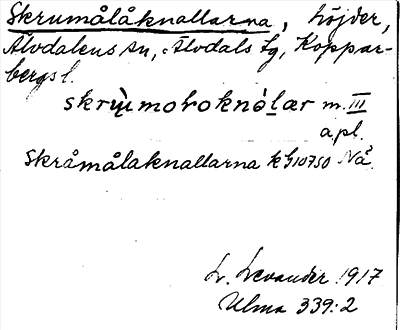 Skrumålåknallarna, höjder,
Älvdalens sn, Älvdals tg, Koppar-
bergs l.
skrùumoroknòlær m. III
a.pl.
Skråmålaknallarna kbl10750 Nå.
L. Levander 1917
Ulma 339:2